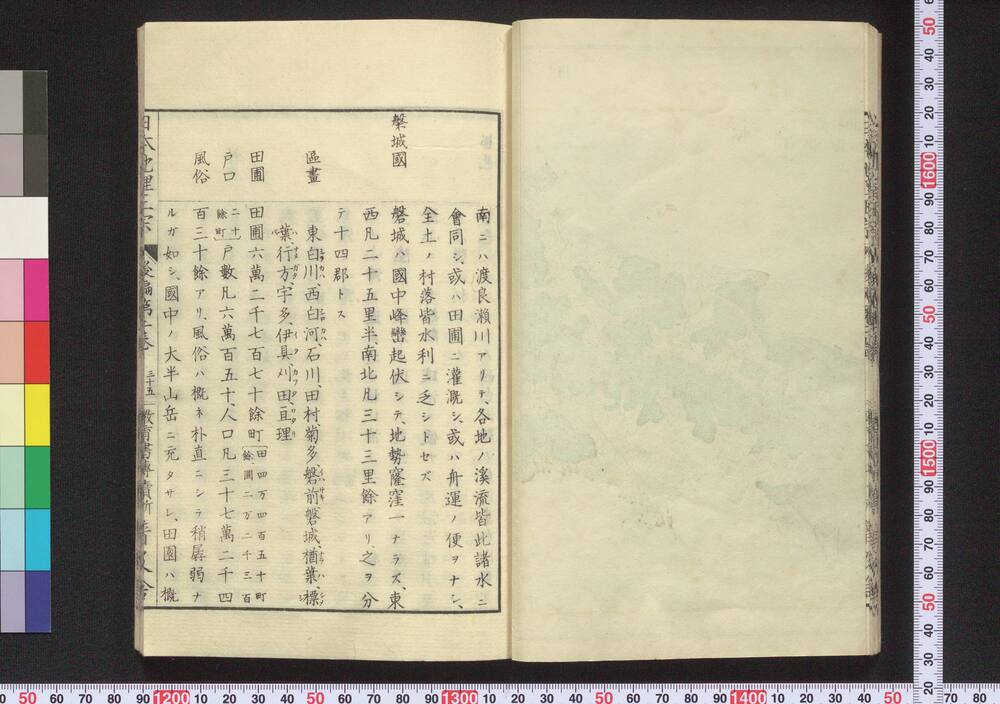 南ニハ渡良瀬川アリテ、各地ノ溪流皆此諸水ニ
會同シ、或ハ田圃ニ灌漑シ、或ハ舟運ノ便ヲナシ、
全土ノ村落皆水利ニ乏シトセズ
磐城國
磐城ハ國中峰巒起伏シテ、地勢窪窪一ナラズ、東
西凡二十五里半、南北凡三十三里餘アリ、之ヲ分
テ十四郡トス
區畫
東白川、西白河、石川、田村、菊多、磐前、磐城、楢葉、標
葉、行方、宇多、伊具、刈田、亘理
田圃
田圃六萬二千七百七十餘町
田四万四百五十町
餘、圃二万二千三百
二十
餘町
戸口
戸數凡六萬百五十、人口凡三十七萬二千四
百三十餘アリ、
風俗
風俗ハ概ネ朴直ニシテ稍孱弱ナ
ルガ如シ、國中ノ大半山岳ニ充タサレ、田園ハ概
日本地理
後編第
三十五